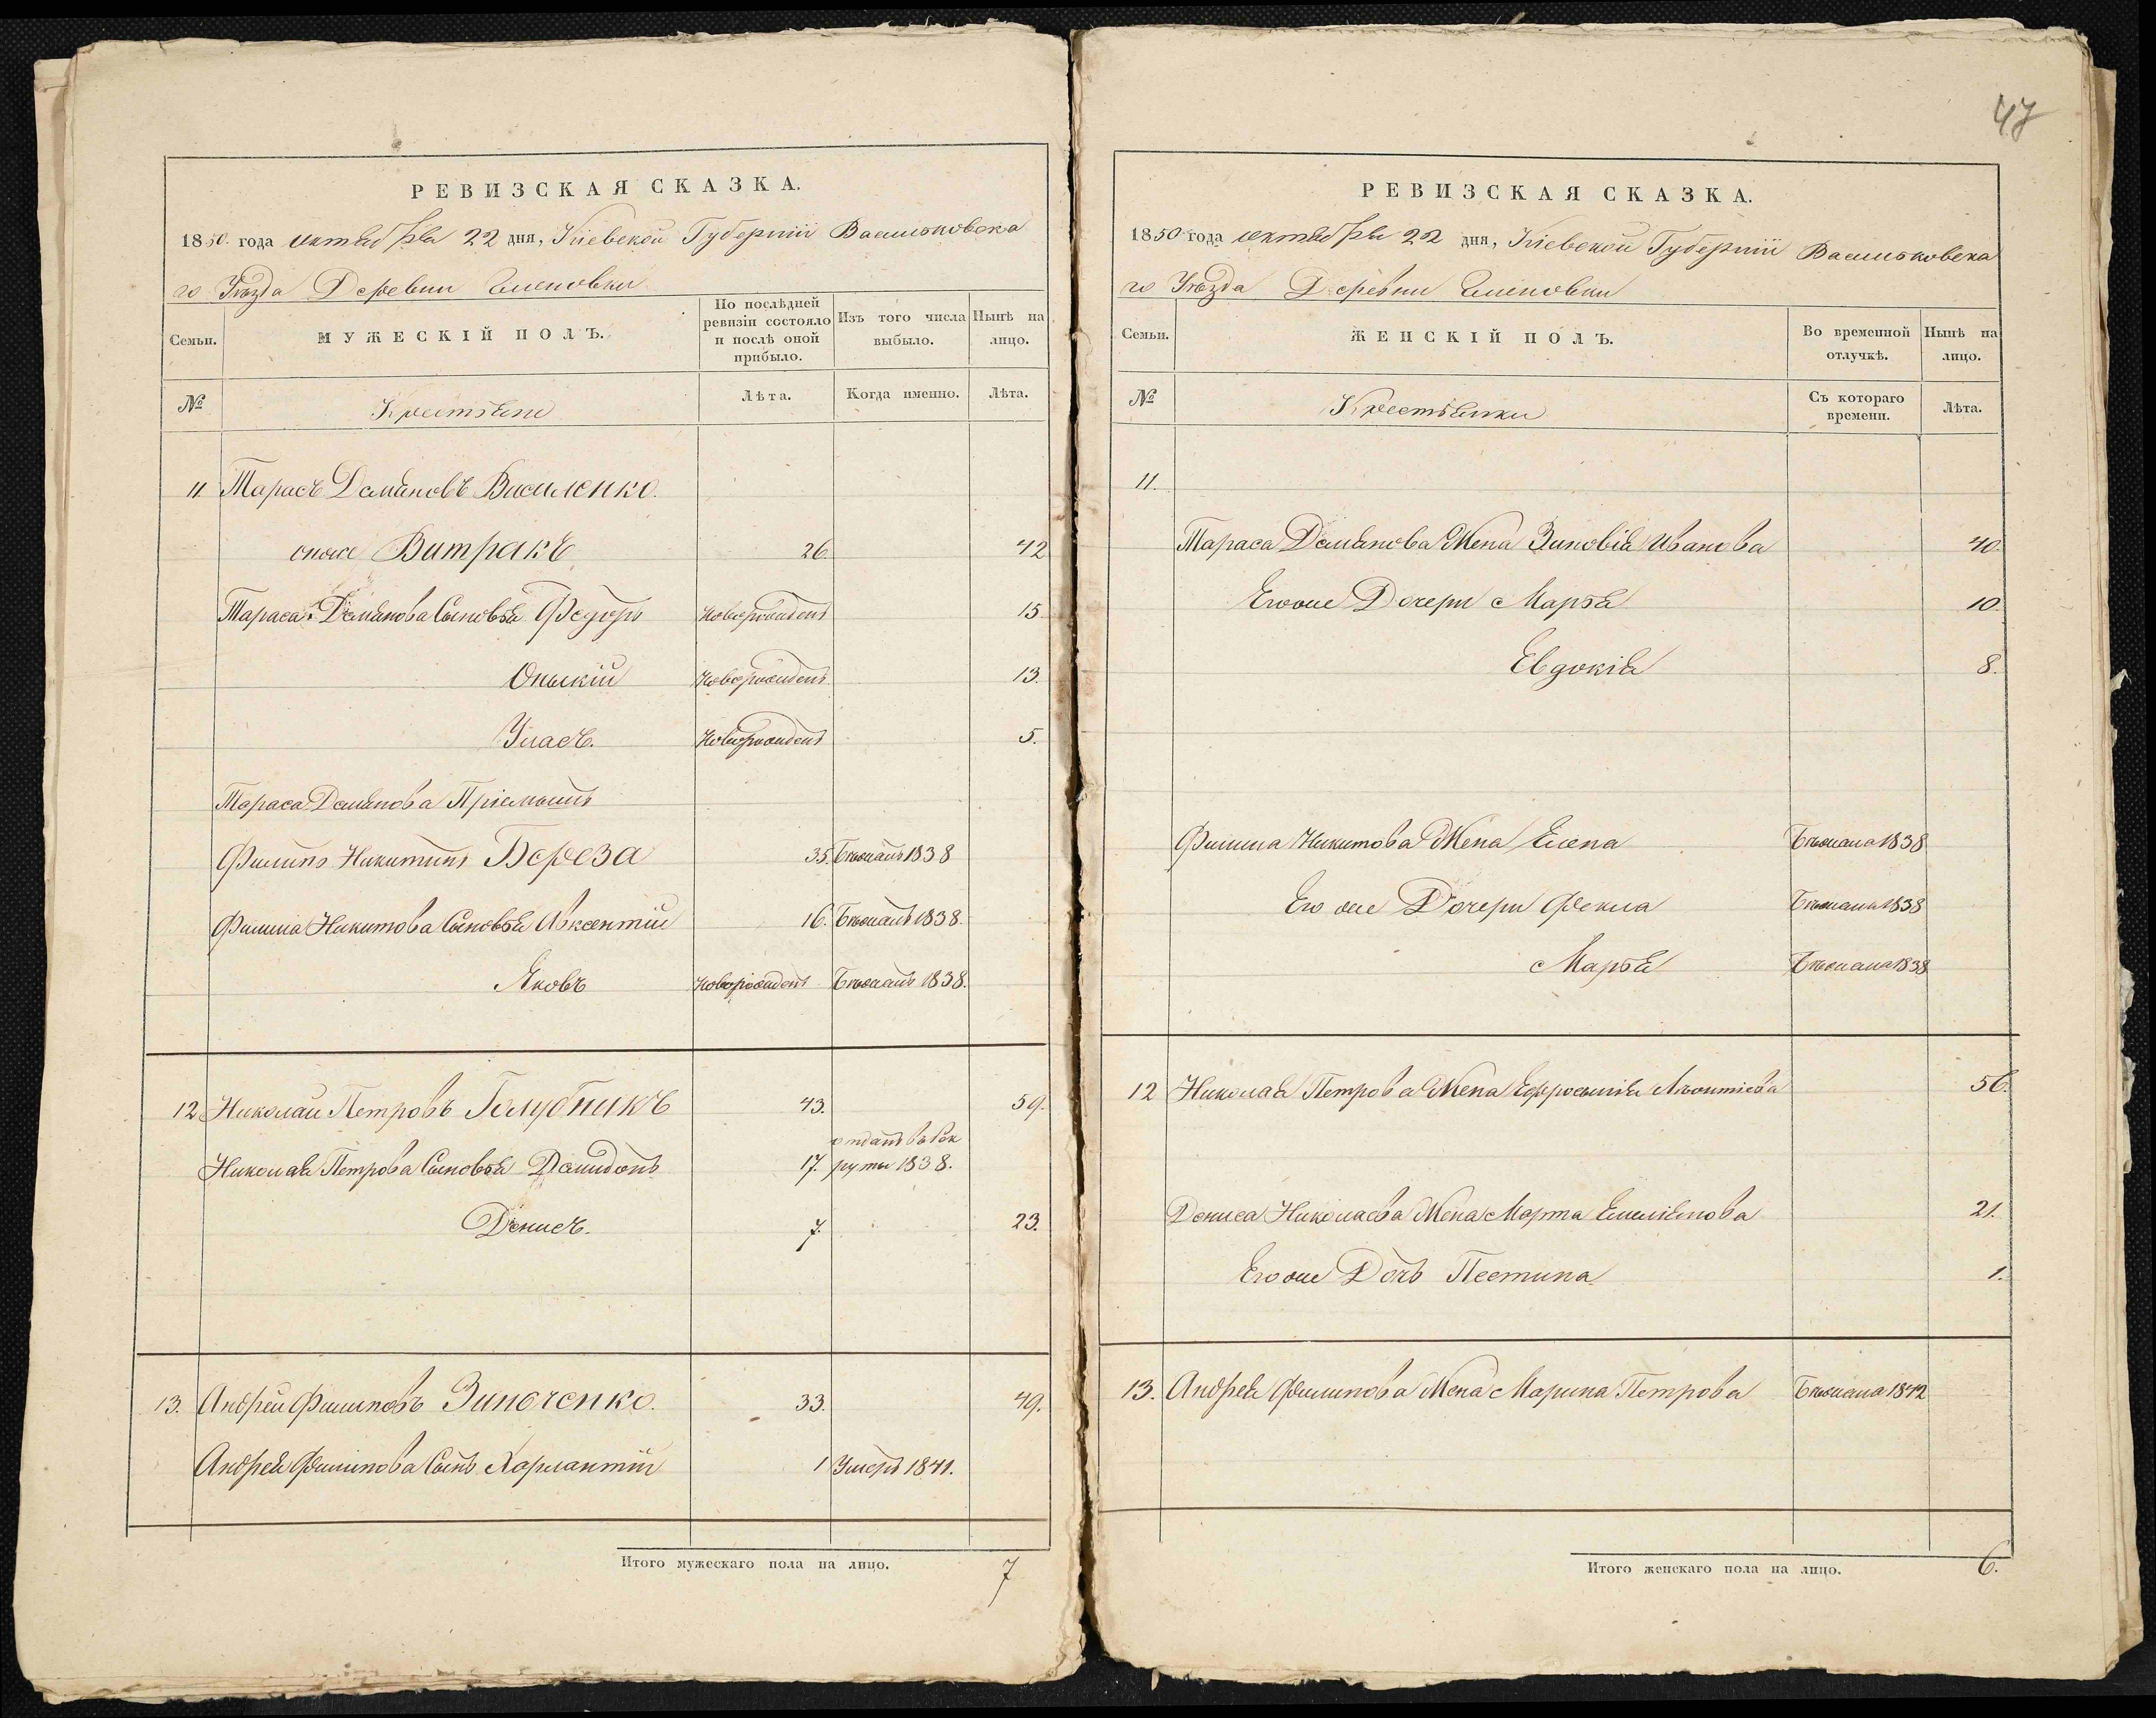 РЕВИЗСКАЯ СКАЗКА.
1850 года октября 22 дня, Кіевской Губерніи Васильковска
го Уѣзда Деревни Еленовки
Семьи.
МУЖЕСКІЙ ПОЛЪ.
По послѣдней ревизіи состояло и послѣ оной прибыло.
Изъ того числа выбыло.
Нынѣ на лицо.
№
Крестьяне
Лѣта.
Когда именно.
Лѣта.
11. Тарасъ Демяновъ Василенко
онже Витракъ 26 42
Тараса Демянова Сыновья Федоръ Новорожденъ 15.
Онискій Новорожденъ 13.
Уласъ. Новорожденъ 5.
Тараса Демянова Пріемышъ
Филипъ Никитинъ Береза 35. Бѣжалъ 1838
Филипа Никитова Сыновья Авксентій 16. Бѣжалъ 1838.
Яковъ Новорожденъ Бѣжалъ 1838.
12. Николай Петровъ Голубникъ 43. 59.
отданъ въ Рек
Николая Петрова Сыновья Демидонъ 17. руты 1838.
Денисъ. 7. 23.
13. Андрей Филиповъ Зинченко. 33. 49.
Андрея Филипова Сынъ Харлантій 1 Умеръ 1841.
Итого мужескаго пола на лицо. 7
47
РЕВИЗСКАЯ СКАЗКА.
1850 года октября 22 дня, Кіевской Губерніи Васильковска
го Уѣзда Деревни Еленовки
Семьи.
ЖЕНСКІЙ ПОЛЪ.
Во временной отлучкѣ.
Нынѣ на лицо.
№
Крестьянки
Съ котораго времени.
Лѣта.
11.
Тараса Демянова Жена Зиновія Иванова 40.
Егоже Дочери Марья 10.
Евдокія 8.
Филипа Никитова Жена Елена Бѣжала 1838
Его же Дочери Фекла Бѣжала 1838
Марья Бѣжала 1838
12 Николая Петрова Жена Ефросинія Леонтіева 56.
Дениса Николаева Жена Марта Емеліянова 21.
Егоже Дочь Пестина 1.
13. Андрея Филипова Жена Марина Петрова Бѣжала 1842
Итого женскаго пола на лицо. 6.